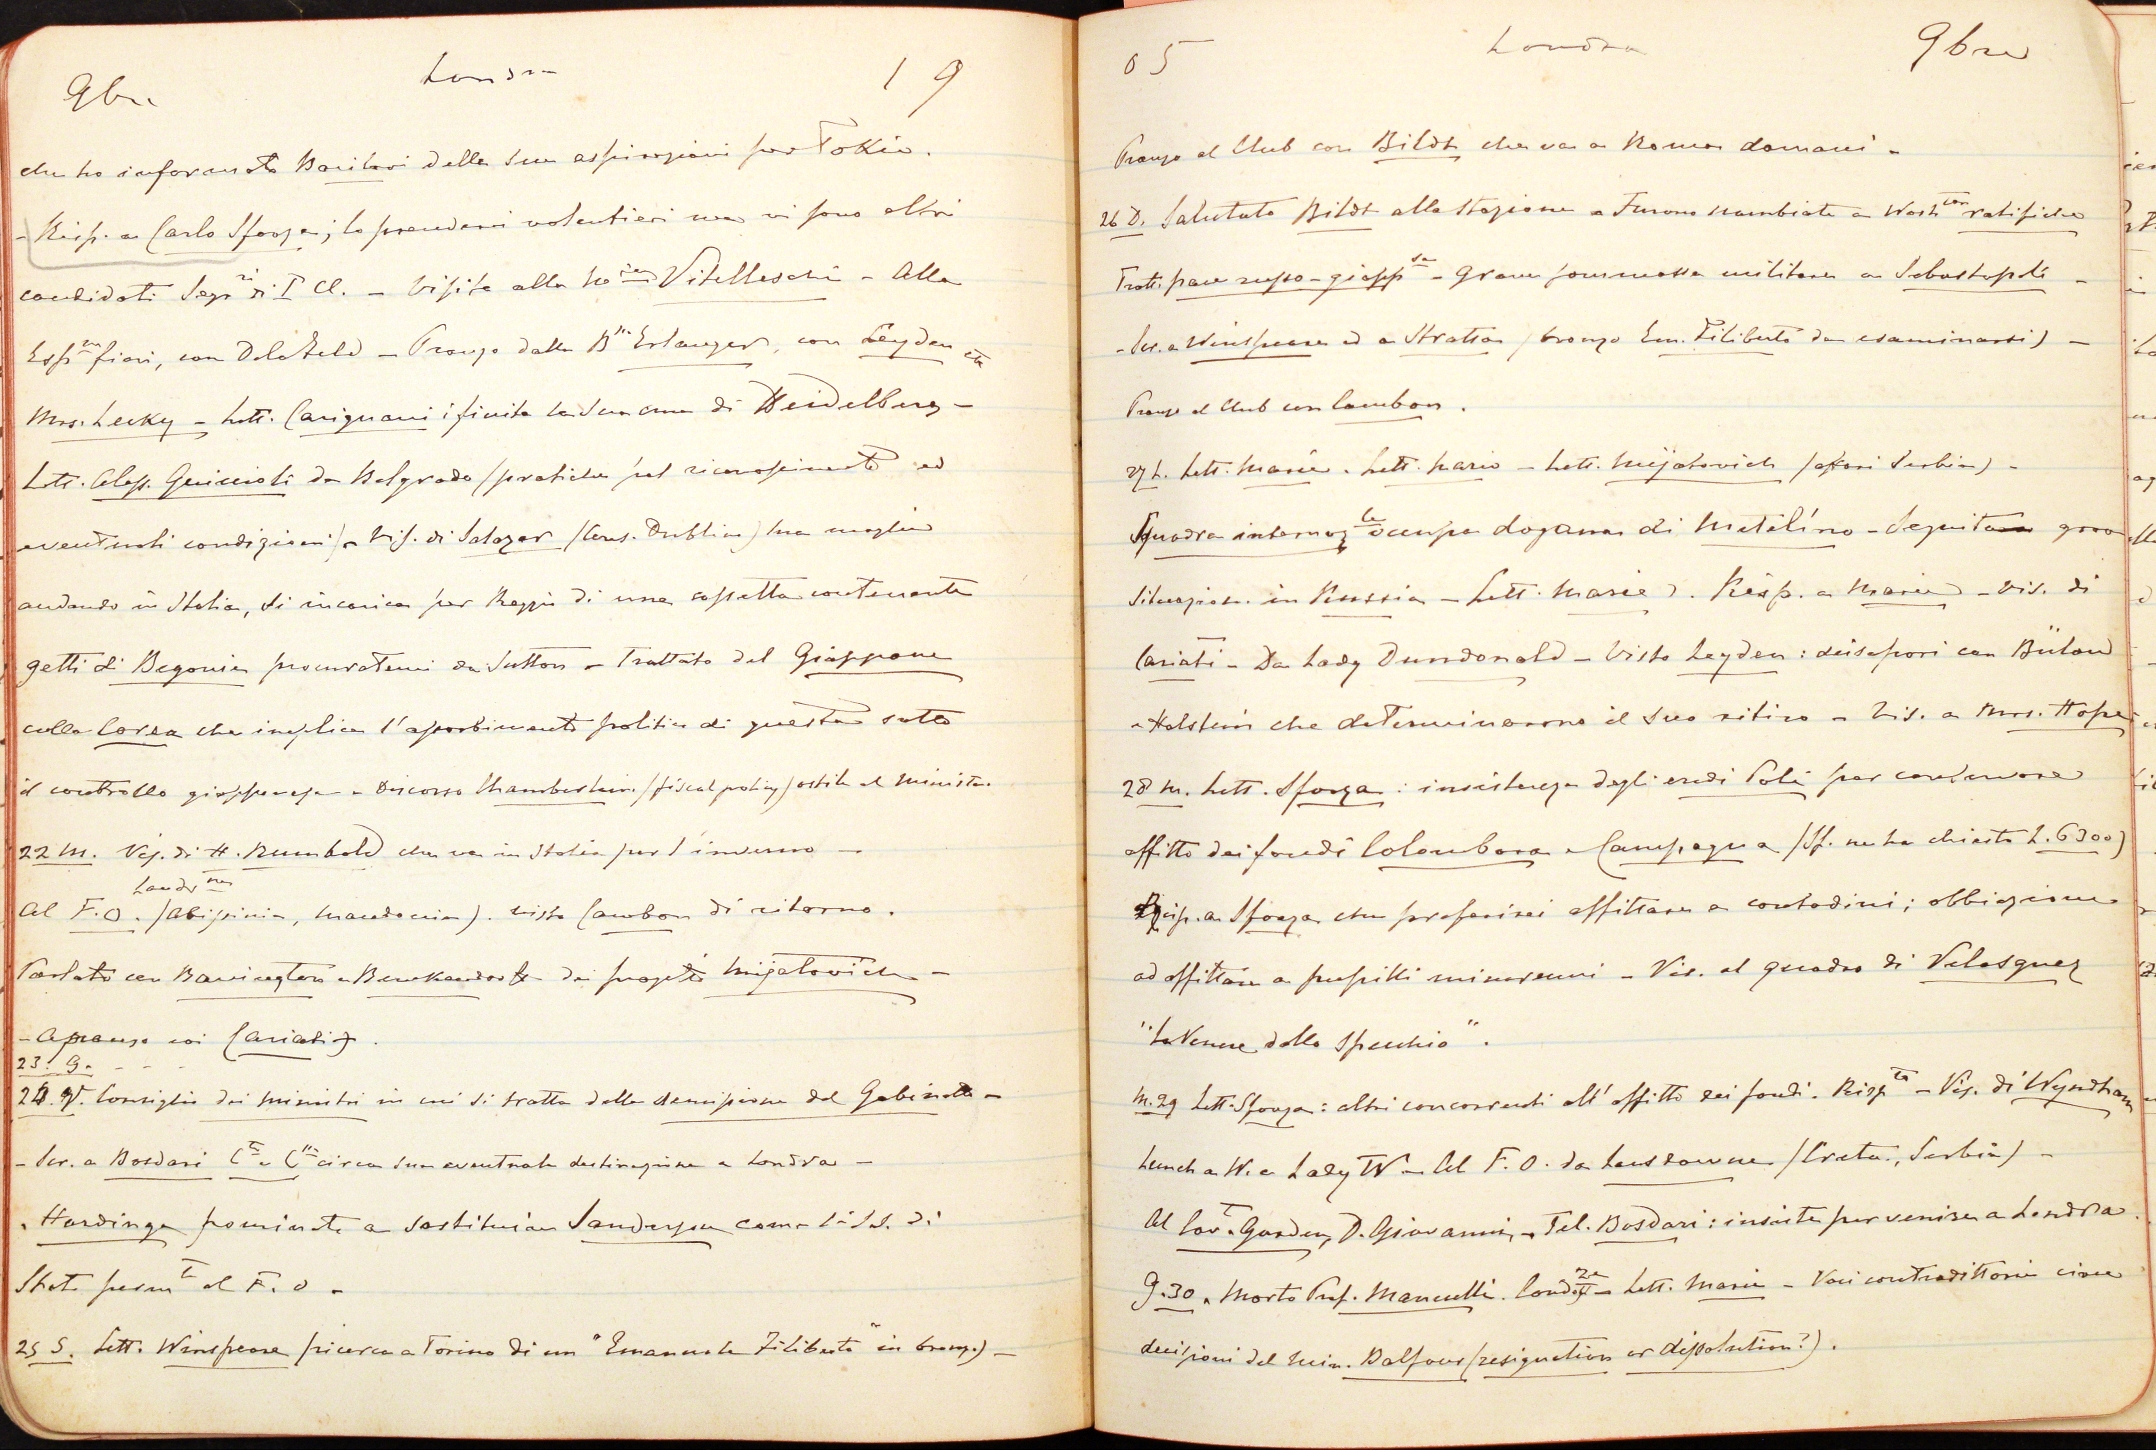 9bre Londra 19
che ho informato Bonilari della sua aspirazioni per Tokio.
- Risp. a Carlo Sforza; lo prenderei volentieri ma vi sono altri
candidati Segri di I Cl. - Visita alla Nosa Vitelleschi - Alla
Espne fiori, con Delafeld - Pranzo dalla Bssa Erlanger, con Leyden etc
Mrs. Lecky - Lett. Carignani; finita la sua cura di Heidelberg -
Lett. Aless. Guiccioli da Belgrado (pratiche pel riconoscimento ed
eventuali condizioni) - Vis. di Salazar (Cons. Dublin) sua moglie
andando in Italia, si incarica per Reggio di una cassetta contenente
getti di Begonia procuratemi da Sutton - Trattato del Giappone
colla Corea che implica l'assorbimento politico di questa sotto
il controllo giapponese - Discorso Chamberlain (fiscal policy) ostile al Ministo.
22 M. Vis. di H. Rumbold che va in Italia per l'inverno -
Landsne
Al F.O. (Abissinia, Macedonia). Visto Cambon di ritorno.
Parlato con Barrington e Benkendorff dei progetti Mijatovich -
- A pranzo coi Cariati.
23. G. - - -
24. V. Consiglio dei ministri in cui si tratta della demissione del Gabinetto -
- Scr. a Bosdari Cte e Cssa circa sua eventuale destinazione a Londra -
- Hardinge nominato a sostituire Sanderson come S.S. di
Stato permte al F.O -
25 S. Lett. Winspeare (ricerca a Torino di un "Emanuele Filiberto" in bronzo) -
05 Londra 9bre
Pranzo al Club con Bildt che va a Roma domani -
26 D. Salutato Bildt alla stazione - Furono scambiate a Washton ratifiche
Tratt. pace russo-giappse - Grave sommossa militare a Sebastopoli -
- Scr. a Winspeare ed a Stratta (bronzo Em. Filiberto da esaminarsi) -
Pranzo al Club con Cambon.
27 L. Lett. Marie. Lett. Mario - Lett. Mijatovich (affari Serbia) -
Squadra internazle occupa dogana di Metelino - Seguita grave
situazione in Russia - Lett. Marie. Risp. a Marie - Vis. di
Cariati - Da Lady Dundonald - Visto Leyden: dissapori con Bülow
e Holstein che determinarono il suo ritiro - Vis. a Mrs. Hope
28 M. Lett. Sforza: insistenza degli eredi Poli per continuare
affitto dei fondi Colombara e Campagna (Sf. ne ha chiesto L. 6300)
Risp. a Sforza che preferirei affittare a contadini; obbiezione
ad affittare a pupilli minorenni - Vis. al quadro di Velasquez
"La Venere dello Specchio".
M. 29 Lett. Sforza: altri concorrenti all'affitto dei fondi. Rispto - Vis. di Wyndham
Lunch a W. e Lady W - Al F.O. da Lansdowne (Creta, Serbia) -
Al Covt Garden, D. Giovanni, - Tel. Bosdari: insiste per venire a Londra.
G. 30. Morto Prof. Mancelli. Condoze - Lett. Marie - Voci contradittorie circa
decisioni del Min. Balfour (resignation or dissolution?).